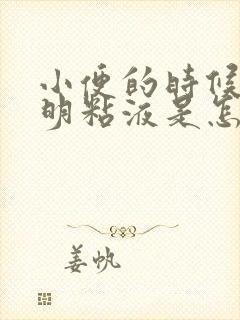 小便的時候
明粘液是怎
姜帆